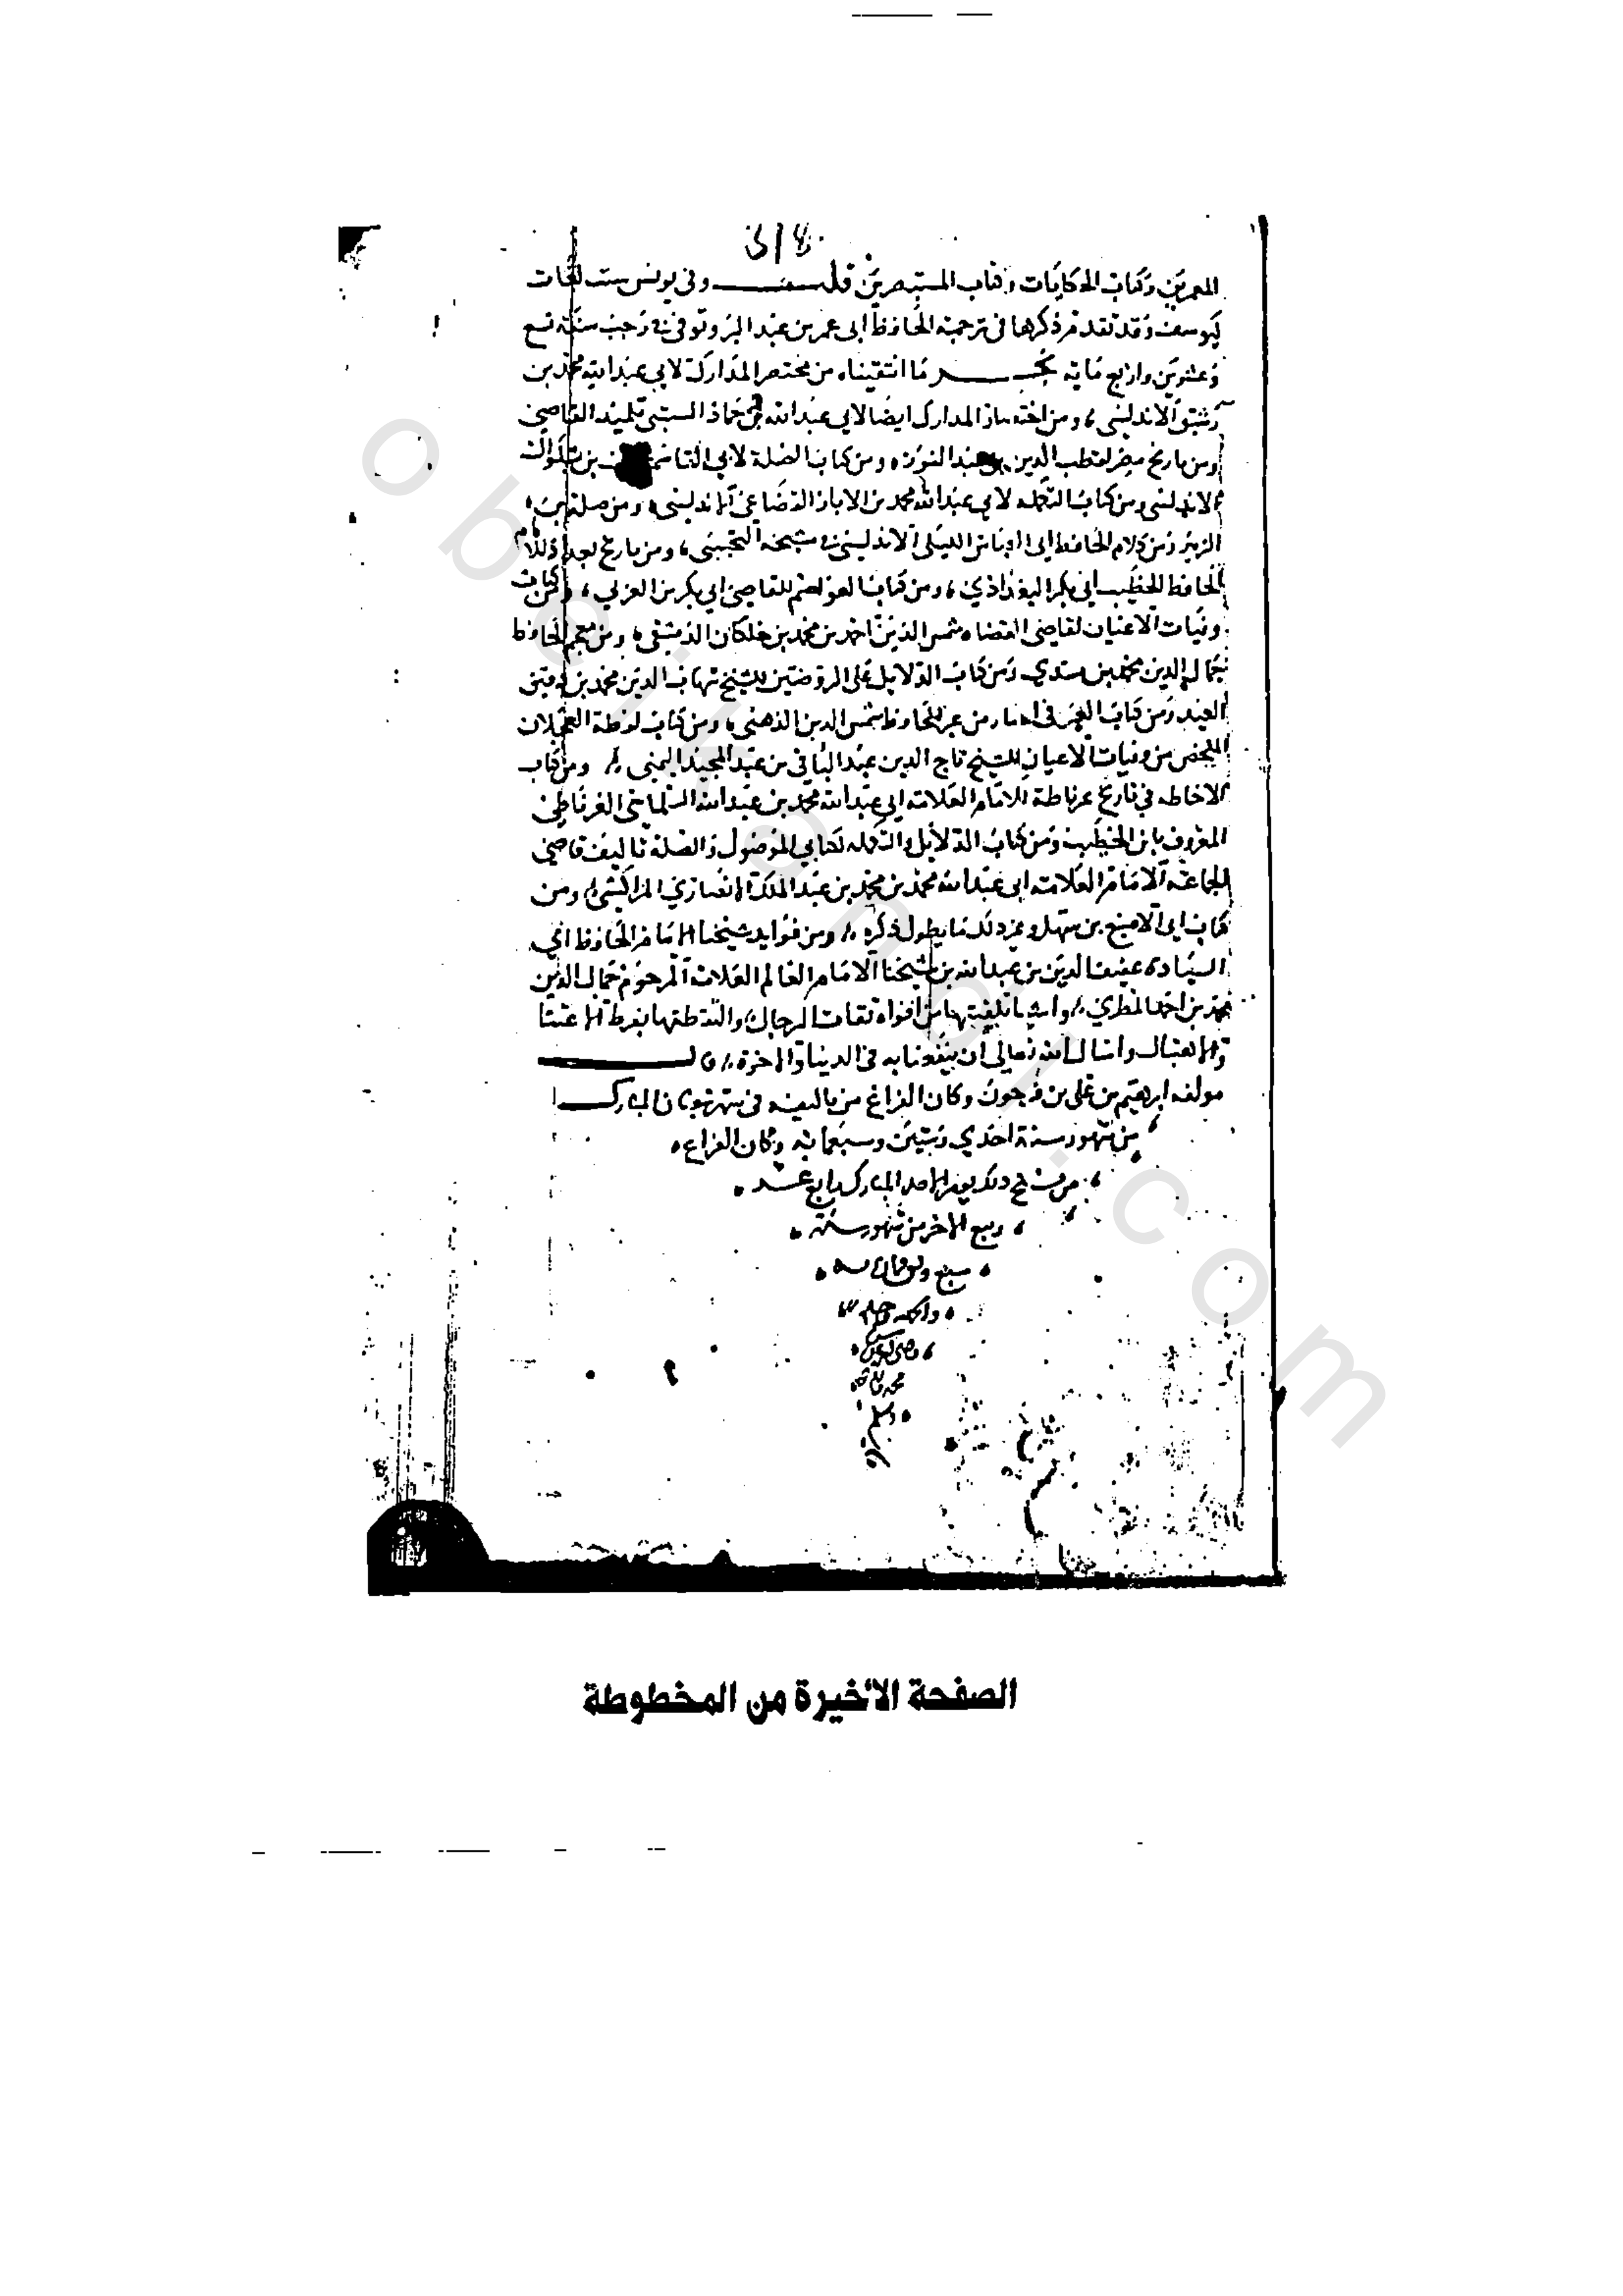 المعمرين وكتاب الحكايات وكتاب المستبصرين قلت وفي يونس ست لغات
كيوسف وقد تقدم ذكرها في ترجمة الحافظ ابي عمر بن عبد البر وتوفي في رجب سنة تسع
وعشرين واربع ماية نجز ما انتقيناه من مختصر المدارك لابي عبد الله محمد بن
رشيق الاندلسي ومن اختصار المدارك ايضا لابي عبد الله بن حماذ السبتي تلميذ القاضي
ومن تاريخ مصر لقطب الدين عبد النور ومن كتاب الصلة لابي القاسم بن بشكوال
الاندلسي ومن كتاب التكملة لابي عبد الله محمد بن الابار القضاعي الاندلسي ومن صلة بن
الزبير ومن كلام الحافظ ابي العباس الاندلسي في مشيخة التجيبي ومن تاريخ بغداذ للامام
الحافظ الخطيب ابي بكر البغداذي ومن كتاب العواصم للقاضي ابي بكر بن العربي ومن كتاب
وفيات الاعيان لقاضي القضاه شمس الدين احمد بن محمد بن خلكان الدمشقي ومن معجم الحافظ
جمال الدين محمد بن مسدي ومن كتاب الذلايل على الروضتين للشيخ شهاب الدين محمد بن دقيق
العيد ومن كتاب العبر في اخبار من عبر للحافظ شمس الدين الذهبي ومن كتاب لقطة العجلان
الملخص من وفيات الاعيان للشيخ تاج الدين عبد الباقي بن عبد المجيد اليمني ومن كتاب
الاحاطه في تاريخ غرناطة للامام العلامه ابي عبد الله محمد بن عبد الله السلماني الغرناطي
المعروف بابن الخطيب ومن كتاب الذلايل والتكمله لكتابي الموصول والصلة تاليف قاضي
الجماعة الامام العلامه ابي عبد الله محمد بن محمد بن عبد الملك الانصاري المراكشي ومن
كتاب ابي الاصبغ بن سهل وغير ذلك مما يطول ذكره ومن فوايد شيخنا الامام الحافظ ابي
السيادة عفيف الدين بن عبد الله بن شيخنا الامام العالم العلامه المرحوم جمال الدين
محمد بن احمد المطري واشيا تلقيتها من افواه ثقات الرجال والتقطتها بفرط الاعتنا
والاهتبال واسال الله تعالى ان ينفعنا به في الدنيا والاخرة قال
مولفه ابرهيم بن علي بن فرحون وكان الفراغ من تاليفه في شهر شعبان المبارك
من شهور سنة احدى وستين وسبعمايه وكان الفراغ
من نسخ ذلك يوم الاحد المبارك رابع عشر
ربيع الاخر من شهور سنة
سبع
والحمد لله
الصفحة الأخيرة من المخطوطة
obeikandl.com